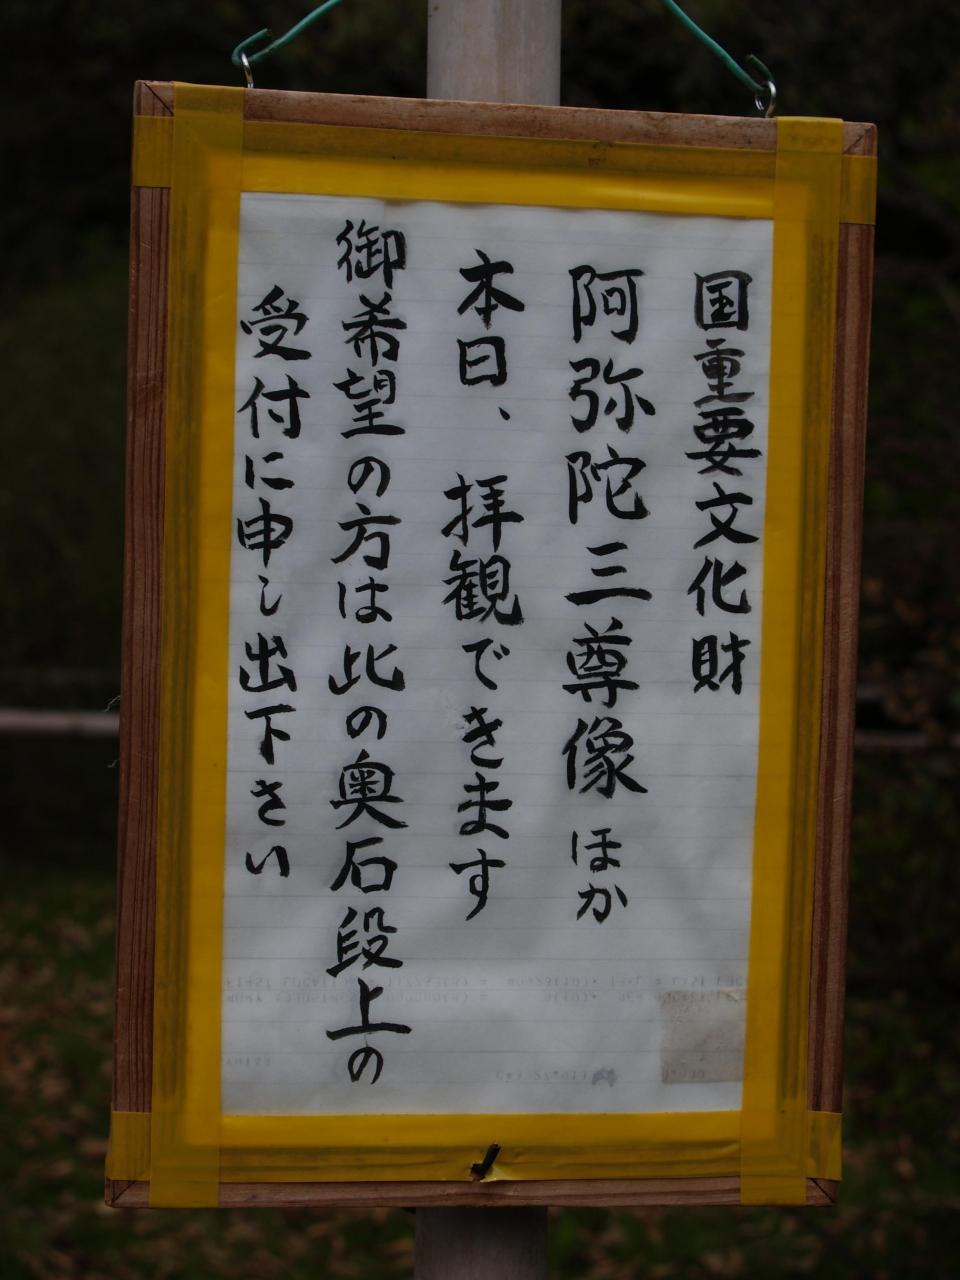 国重要文化財
阿弥陀三尊像ほか
本日、拝観できます
御希望の方は比の奥石段上の
受付に申し出下さい